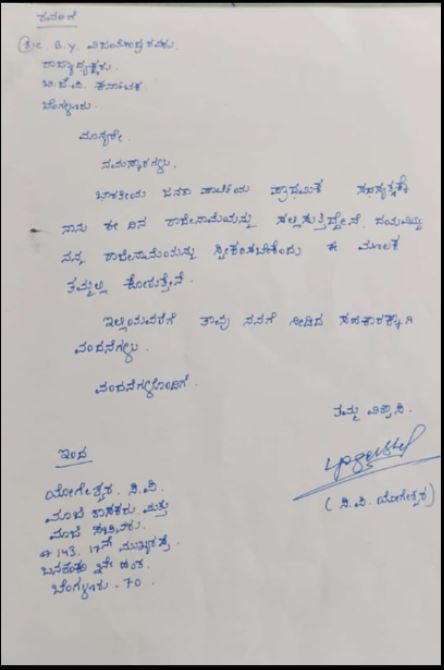 ರವರಿಗೆ
ಶ್ರೀ. B.Y. ವಿಜಯೇಂದ್ರ ರವರು.
ರಾಜ್ಯಾಧ್ಯಕ್ಷರು.
ಬಿ.ಜೆ.ಪಿ. ಕರ್ನಾಟಕ
ಬೆಂಗಳೂರು.
ಮಾನ್ಯರೇ.
ನಮಸ್ಕಾರಗಳು.
ಭಾರತೀಯ ಜನತಾ ಪಾರ್ಟಿಯ ಪ್ರಾಥಮಿಕ ಸದಸ್ಯತ್ವಕ್ಕೆ
ನಾನು ಈ ದಿನ ರಾಜೀನಾಮೆಯನ್ನು ಸಲ್ಲಿಸುತ್ತಿದ್ದೇನೆ. ದಯಮಾಡಿ
ನನ್ನ ರಾಜೀನಾಮೆಯನ್ನು ಸ್ವೀಕರಿಸಬೇಕೆಂದು ಈ ಮೂಲಕ
ತಮ್ಮಲ್ಲಿ ಕೋರುತ್ತೇನೆ.
ಇಲ್ಲಿಯವರೆಗೆ ತಾವು ನನಗೆ ನೀಡಿದ ಸಹಕಾರಕ್ಕಾಗಿ
ವಂದನೆಗಳು.
ವಂದನೆಗಳೊಂದಿಗೆ.
ತಮ್ಮ ವಿಶ್ವಾಸಿ.
(ಸಿ.ಪಿ. ಯೋಗೇಶ್ವರ)
ಇಂದ
ಯೋಗೇಶ್ವರ. ಸಿ.ಪಿ.
ಮಾಜಿ ಶಾಸಕರು ಮತ್ತು
ಮಾಜಿ ಸಚಿವರು.
# 143. 17ನೇ ಮುಖ್ಯರಸ್ತೆ
ಬನಶಂಕರಿ 2ನೇ ಹಂತ.
ಬೆಂಗಳೂರು. 70.